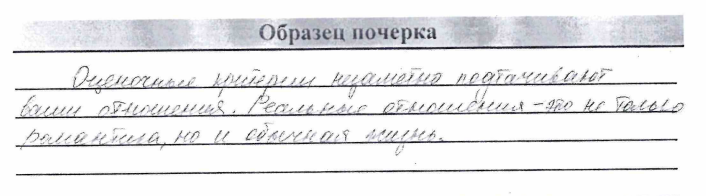 Образец почерка
Оценочные критерии незаметно подтачивают
ваши отношения. Реальные отношения - это не только
романтика, но и обычная жизнь.